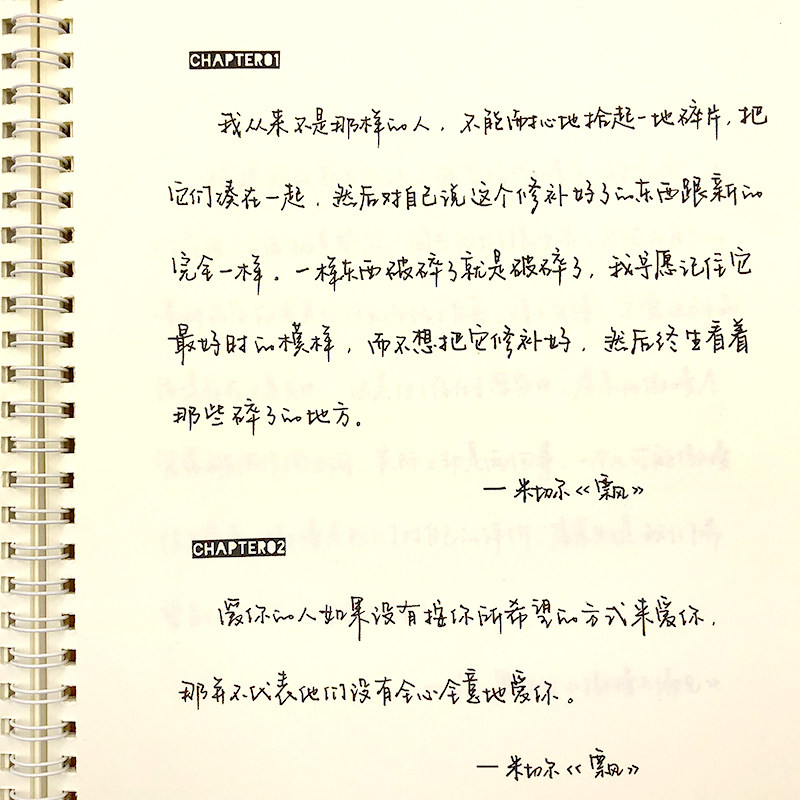 CHAPTER01
我从来不是那样的人，不能耐心地拾起一地碎片，把
它们凑在一起，然后对自己说这个修补好了的东西跟新的
完全一样。一样东西破碎了就是破碎了，我宁愿记住它
最好时的模样，而不想把它修补好，然后终生看着
那些碎了的地方。
— 米切尔《飘》
CHAPTER02
爱你的人如果没有按你所希望的方式来爱你，
那并不代表他们没有全心全意地爱你。
— 米切尔《飘》